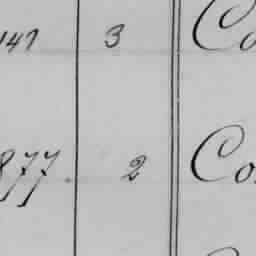 147 3 Co
877 2 Co